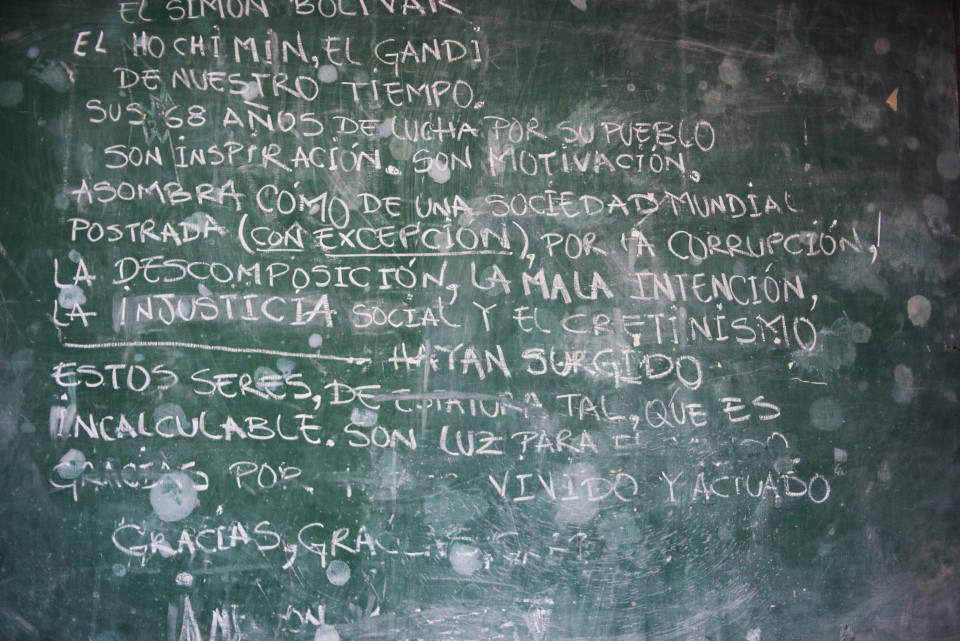 EL SIMÓN BOLIVAR
EL HO CHI MIN, EL GANDI
DE NUESTRO TIEMPO.
SUS 68 AÑOS DE LUCHA POR SU PUEBLO
SON INSPIRACIÓN. SON MOTIVACIÓN.
ASOMBRA COMO DE UNA SOCIEDAD MUNDIAL
POSTRADA (CON EXCEPCIÓN), POR LA CORRUPCIÓN,
LA DESCOMPOSICIÓN, LA MALA INTENCIÓN,
LA INJUSTICIA SOCIAL Y EL CRETINISMO
HAYAN SURGIDO
ESTOS SERES, DE ESTATURA TAL, QUE ES
INCALCULABLE. SON LUZ PARA EL
GRACIAS POR VIVIDO Y ACTUADO
GRACIAS,